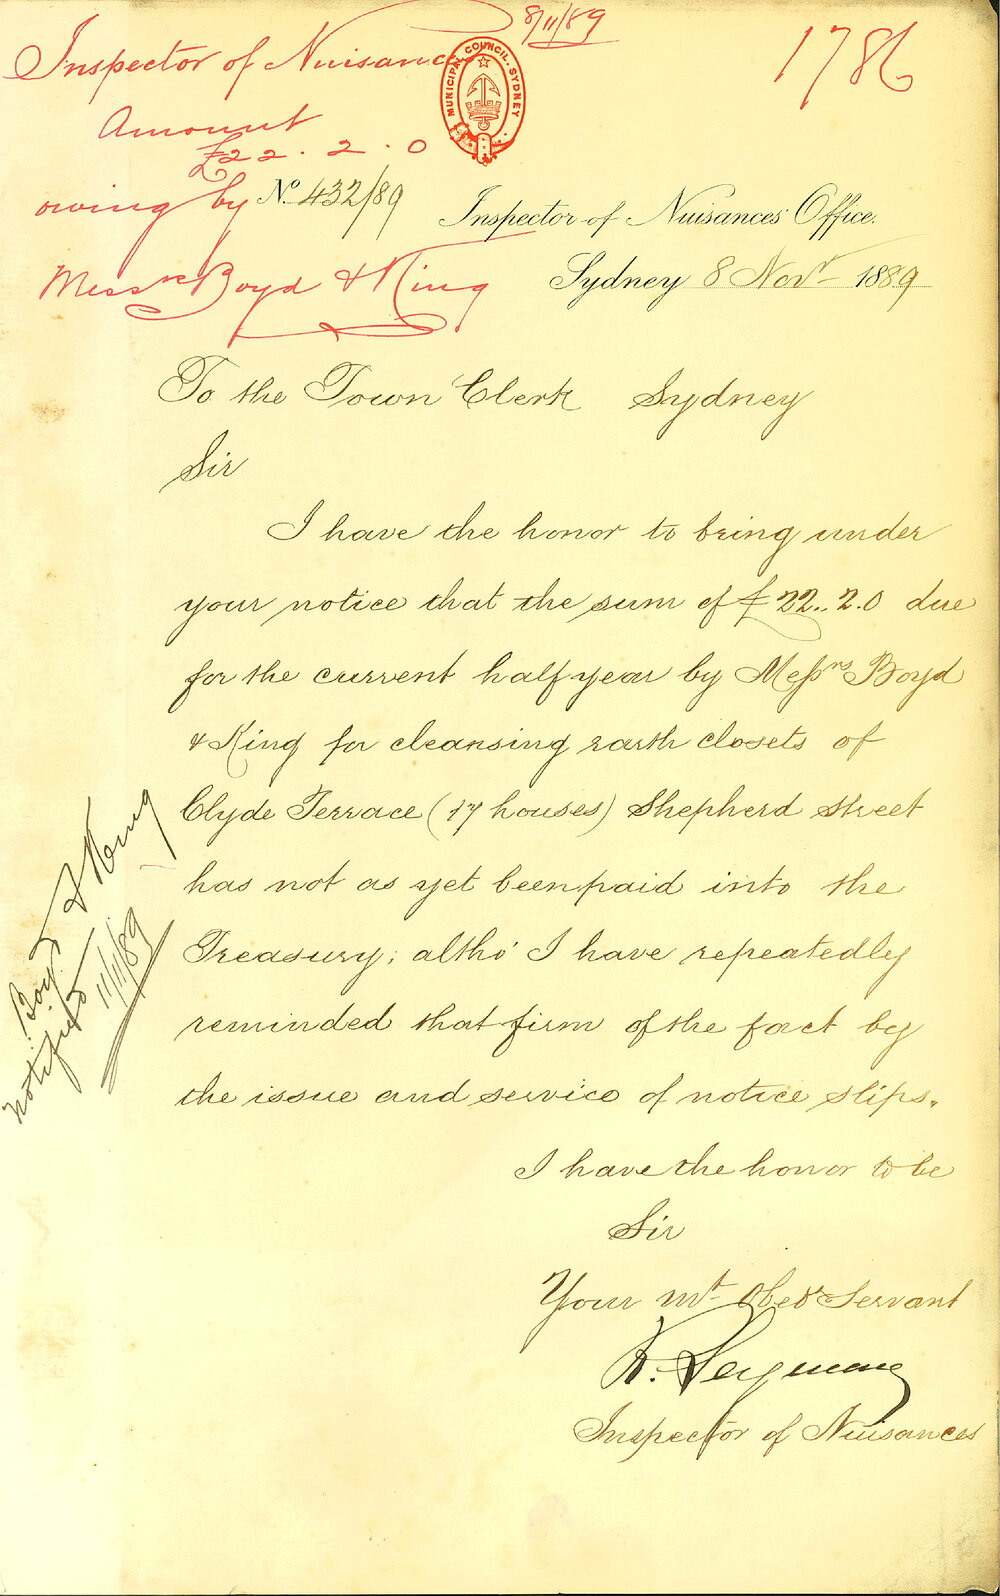 8/11/89
1786
Inspector of Nuisances
MUNICIPAL COUNCIL. SYDNEY
Amount
£22.2.0
owing by
Messrs Boyd & King
No. 432/89
Inspector of Nuisances Office.
Sydney 8 Novr 1889
To the Town Clerk Sydney
Sir
I have the honor to bring under
your notice that the sum of £22..2.0 due
for the current half year by Messrs Boyd
& King for cleansing earth closets of
Clyde Terrace (17 houses) Shepherd Street
has not as yet been paid into the
Treasury; altho' I have repeatedly
reminded that firm of the fact by
the issue and service of notice slips.
I have the honor to be
Sir
Your mt Obedt Servant
R. Seymour
Inspector of Nuisances
Boyd & King
notified 11/11/89